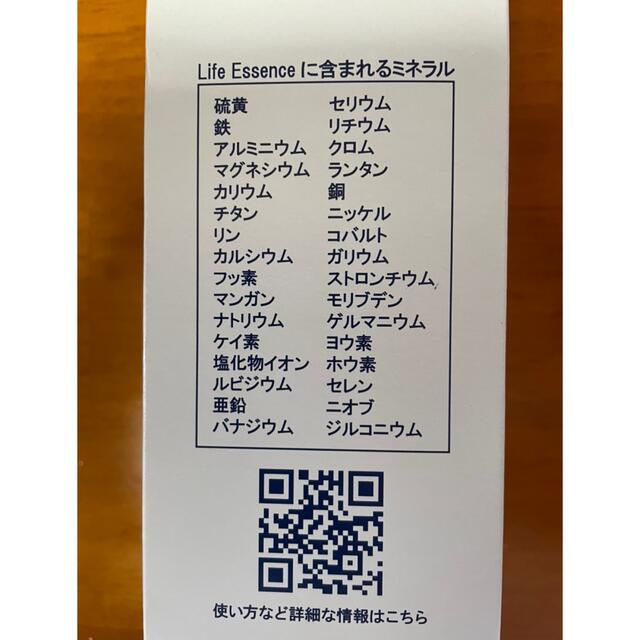 Life Essence に含まれるミネラル
硫黄
鉄
アルミニウム
マグネシウム
カリウム
チタン
リン
カルシウム
フッ素
マンガン
ナトリウム
ケイ素
塩化物イオン
ルビジウム
亜鉛
バナジウム
セリウム
リチウム
クロム
ランタン
銅
ニッケル
コバルト
ガリウム
ストロンチウム
モリブデン
ゲルマニウム
ヨウ素
ホウ素
セレン
ニオブ
ジルコニウム
使い方など詳細な情報はこちら